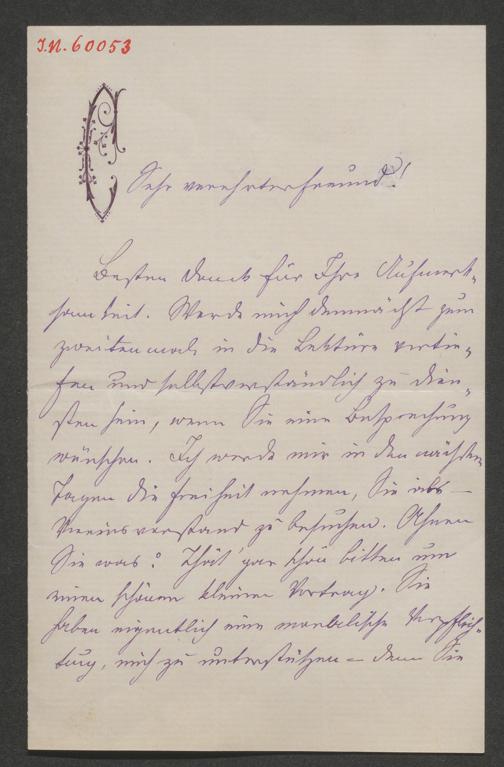 I.N. 60053
C
Sehr verehrter Freund!
Besten Dank für Ihre Aufmerk-
samkeit. Werde mich demnächst zum
zweitenmale in die Lektüre vertie-
fen und selbstverständlich zu Dien-
sten sein, wenn Sie eine Besprechung
wünschen. Ich werde mir in den nächsten
Tagen die Freiheit nehmen, Sie als –
Vereinsvorstand zu besuchen. Ahnen
Sie was? Thät' gar schön bitten um
einen schönen kleinen Vortrag. Sie
haben eigentlich eine moralische Verpflich-
tung, mich zu unterstützen – denn Sie